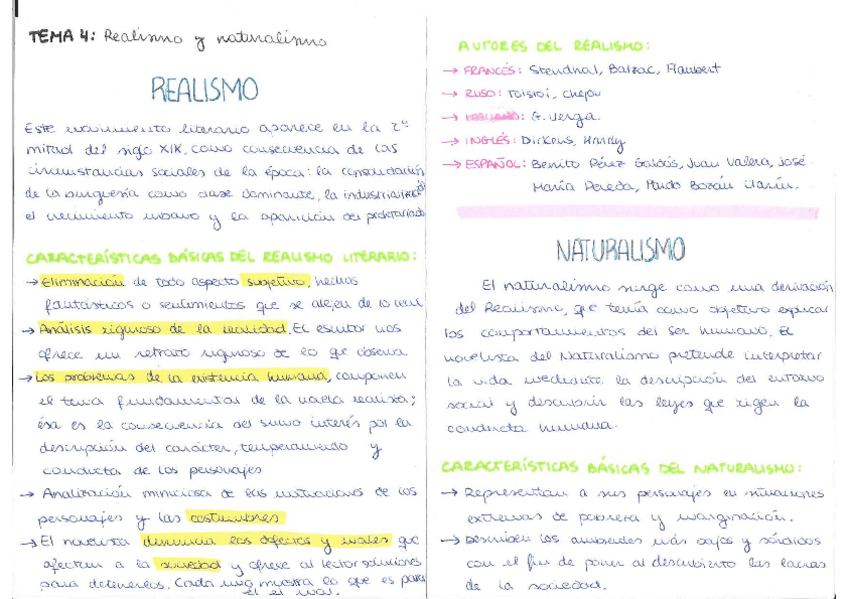 TEMA 4: Realismo y naturalismo
REALISMO
Este movimiento literario aparece en la 2ª
mitad del siglo XIX, como consecuencia de las
circunstancias sociales de la época: la consolidación
de la burguesía como clase dominante, la industrialización
el crecimiento urbano y la aparición del proletariado
CARACTERÍSTICAS BÁSICAS DEL REALISMO LITERARIO:
→ Eliminación de todo aspecto subjetivo, hechos
fantásticos o sentimientos que se alejen de lo real
→ Análisis riguroso de la realidad. El escritor nos
ofrece un retrato riguroso de lo que observa
→ Los problemas de la existencia humana, componen
el tema fundamental de la novela realista;
ésa es la consecuencia del sumo interés por la
descripción del carácter, temperamento y
conducta de los personajes
→ Analización minuciosa de las motivaciones de los
personajes y las costumbres
→ El novelista denuncia los defectos y males que
afectan a la sociedad y ofrece al lector soluciones
para detenerlos. Cada uno muestra lo que es para
él el mal.
AUTORES DEL REALISMO:
→ FRANCÉS: Stendhal, Balzac, Flaubert
→ RUSO: Tolstoi, Chejov
→ ITALIANO: G. Verga.
→ INGLÉS: Dickens, Hardy
→ ESPAÑOL: Benito Pérez Galdós, Juan Valera, José
María Pereda, Pardo Bazán Clarín.
NATURALISMO
El naturalismo surge como una derivación
del Realismo, que tenía como objetivo explicar
los comportamientos del ser humano. El
novelista del Naturalismo pretende interpretar
la vida mediante la descripción del entorno
social y descubrir las leyes que rigen la
conducta humana.
CARACTERÍSTICAS BÁSICAS DEL NATURALISMO:
→ Representan a sus personajes en situaciones
extremas de pobreza y marginación.
→ Describen los ambientes más bajos y sórdidos
con el fin de poner al descubierto las lacras
de la sociedad.